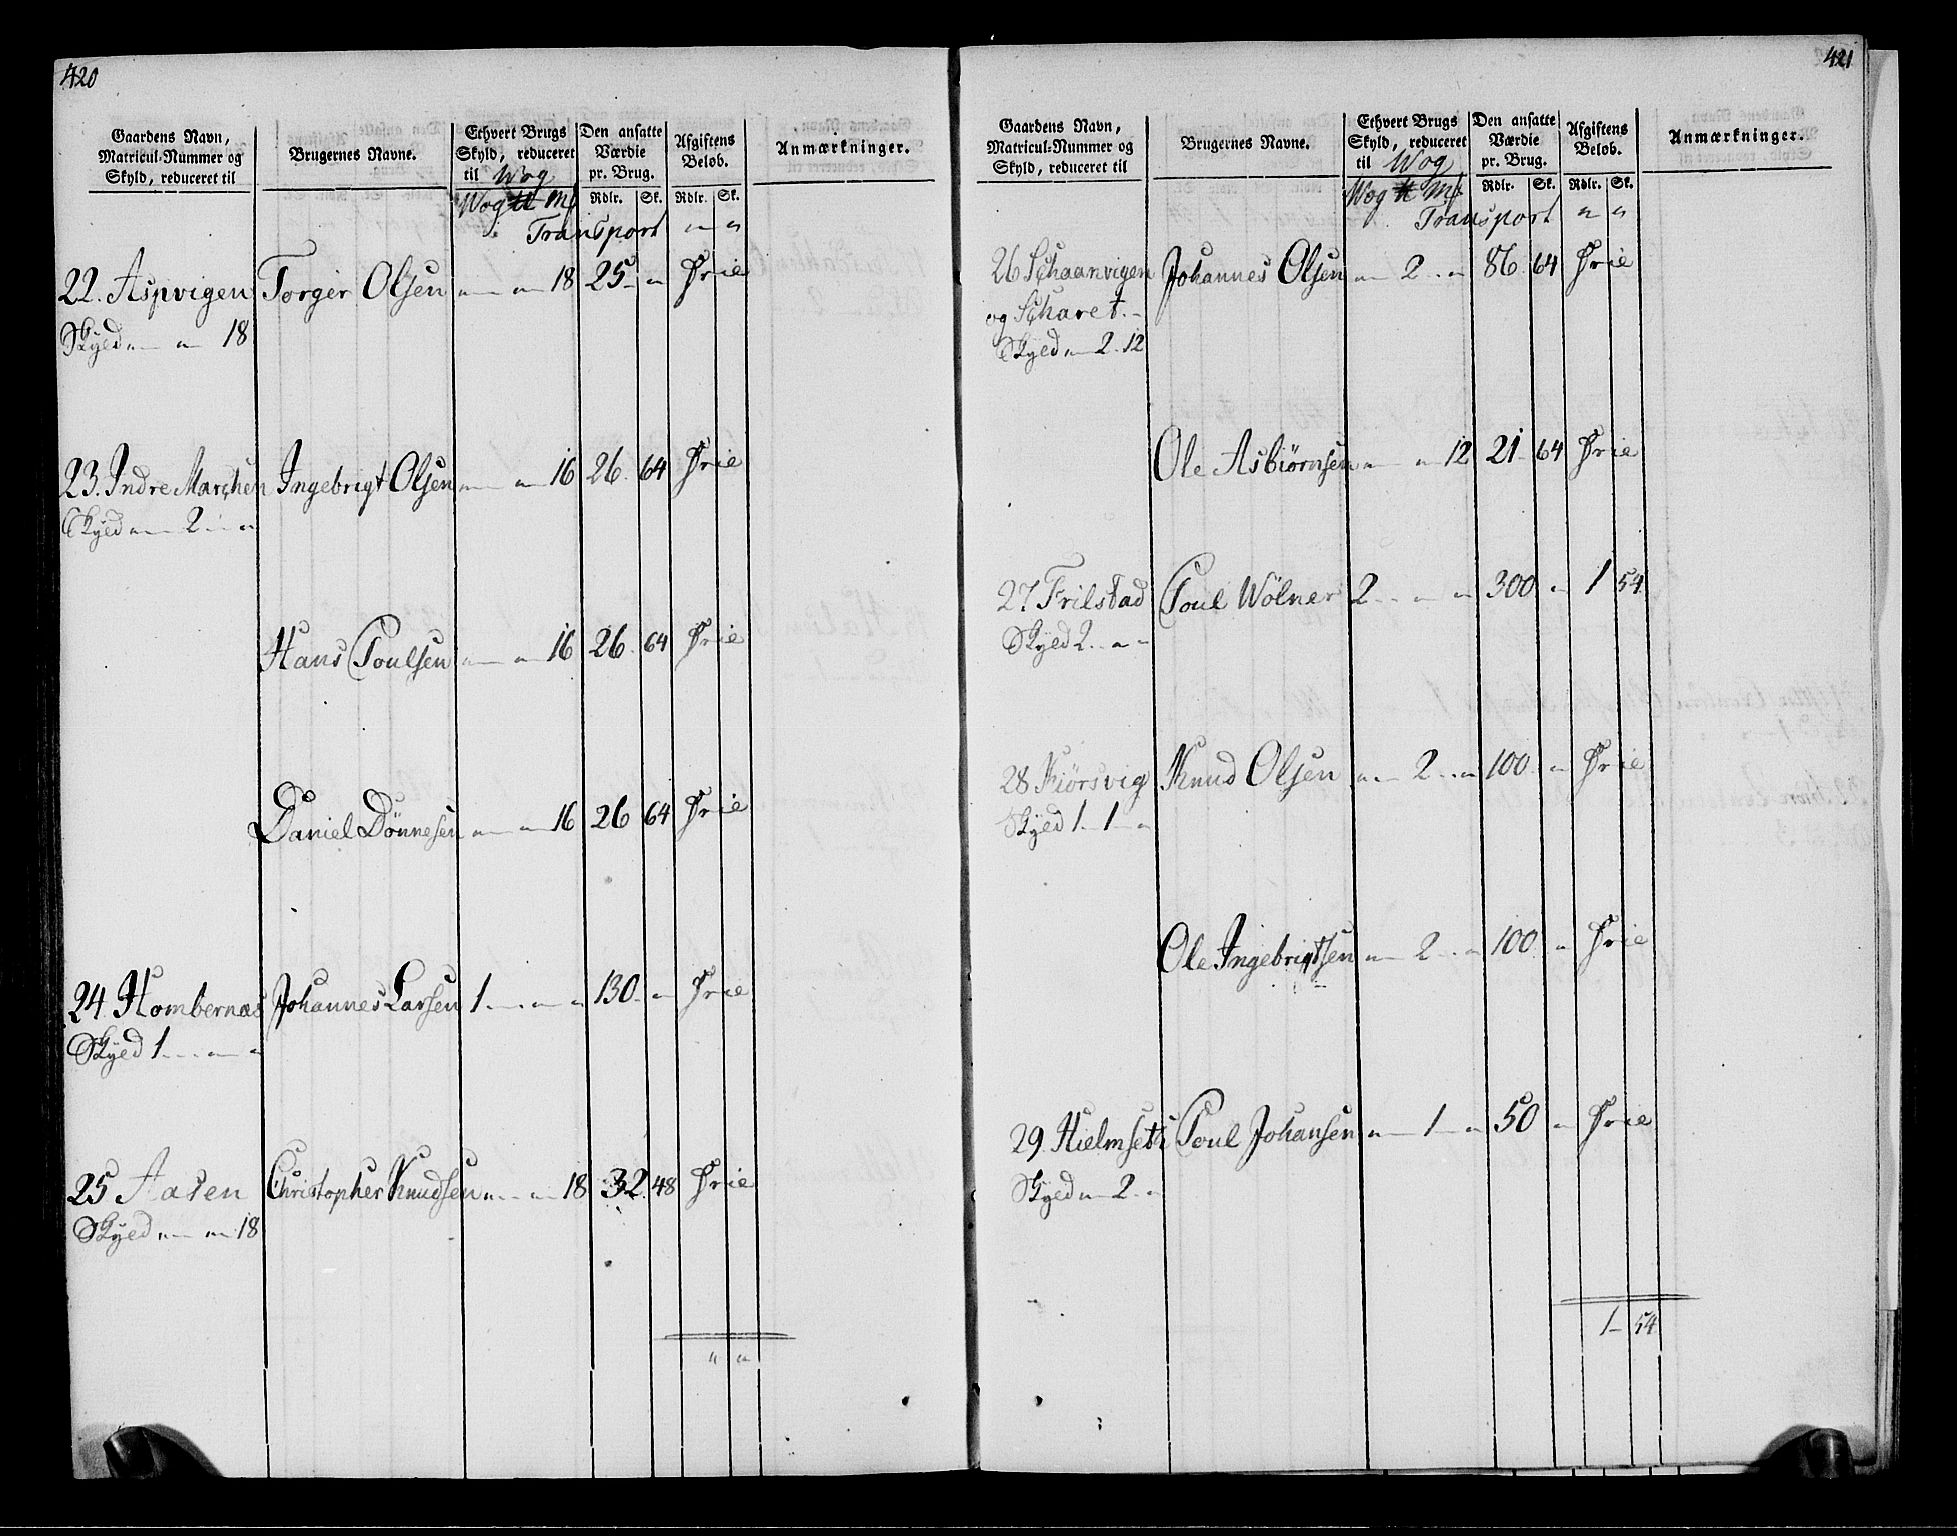 420
Gaardens Navn, Matricul-Nummer og Skyld, reduceret til
Brugernes Navne.
Ethvert Brugs Skyld, reduceret til Wog
Den ansatte Værdie pr. Brug.
Afgiftens Beløb.
Anmærkninger.
Rdlr. Sk. Rdlr. Sk.
Transport " "
22. Aspvigen Torger Olsen " " 18 25 " Frie
Skyld " " 18
23. Indre Marchen Ingebrigt Olsen " " 16 26 64 Frie
Skyld " 2 "
Hans Poulsen " " 16 26 64 Frie
Daniel Dönnesen " " 16 26 64 Frie
24 Hombernæs Johannes Larsen 1 " " 130 " Frie
Skyld 1 " "
25 Aasen Christopher Knudsen " " 18 32 48 Frie
Skyld " " 18
" "
421
Gaardens Navn, Matricul-Nummer og Skyld, reduceret til
Brugernes Navne.
Ethvert Brugs Skyld, reduceret til Wog
Den ansatte Værdie pr. Brug.
Afgiftens Beløb.
Anmærkninger.
Rdlr. Sk. Rdlr. Sk.
Transport " "
26 Schaanvigen Johannes Olsen " 2 " 86 64 Frie
og Scharet
Skyld " 2 12
Ole Asbiörnsen " " 12 21 64 Frie
27 Frilstad Poul Wölner 2 " " 300 " 1 54
Skyld 2 " "
28 Kiörsvig Knud Olsen " 2 " 100 " Frie
Skyld 1 1 "
Ole Ingebrigtsen " 2 " 100 " Frie
29 Hielmseth Poul Johansen " 1 " 50 " Frie
Skyld " 2 "
1 54